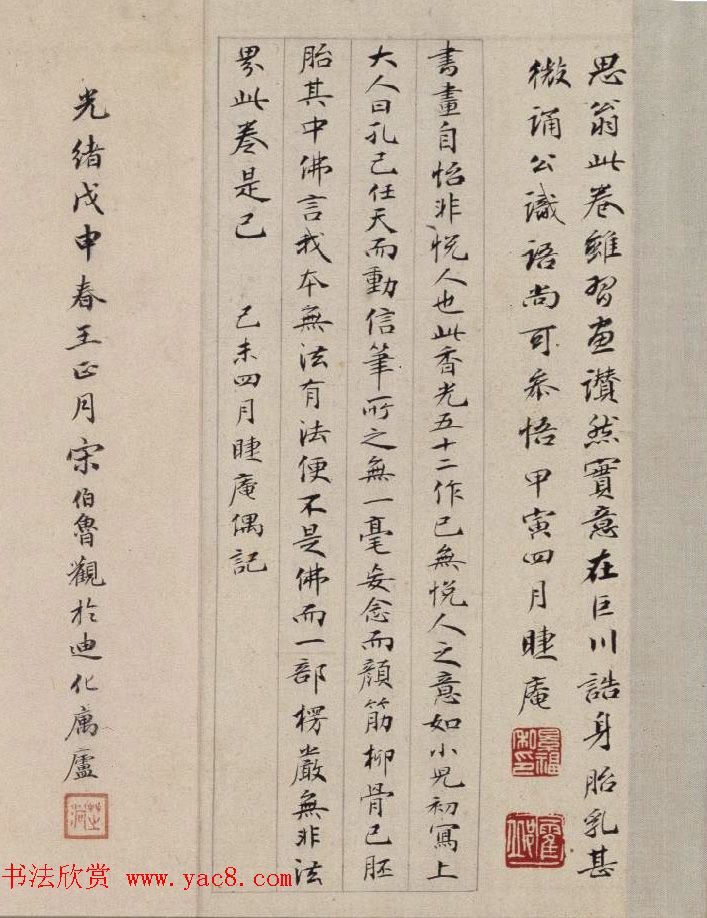 思翁此卷雖習畫讚然實意在巨川誥身胎乳甚
微誦公識語尚可參悟甲寅四月睫庵
景福私印
書畫自怡非悅人也此香光五十二作已無悅人之意如小兒初寫上
大人曰孔己任天而動信筆所之無一毫妄念而顏筋柳骨已胚
胎其中佛言我本無法有法便不是佛而一部楞嚴無非法
界此卷是已　己未四月睫庵偶記
光緒戊申春王正月宋伯魯觀於迪化寓廬
书法欣赏 www.yac8.com